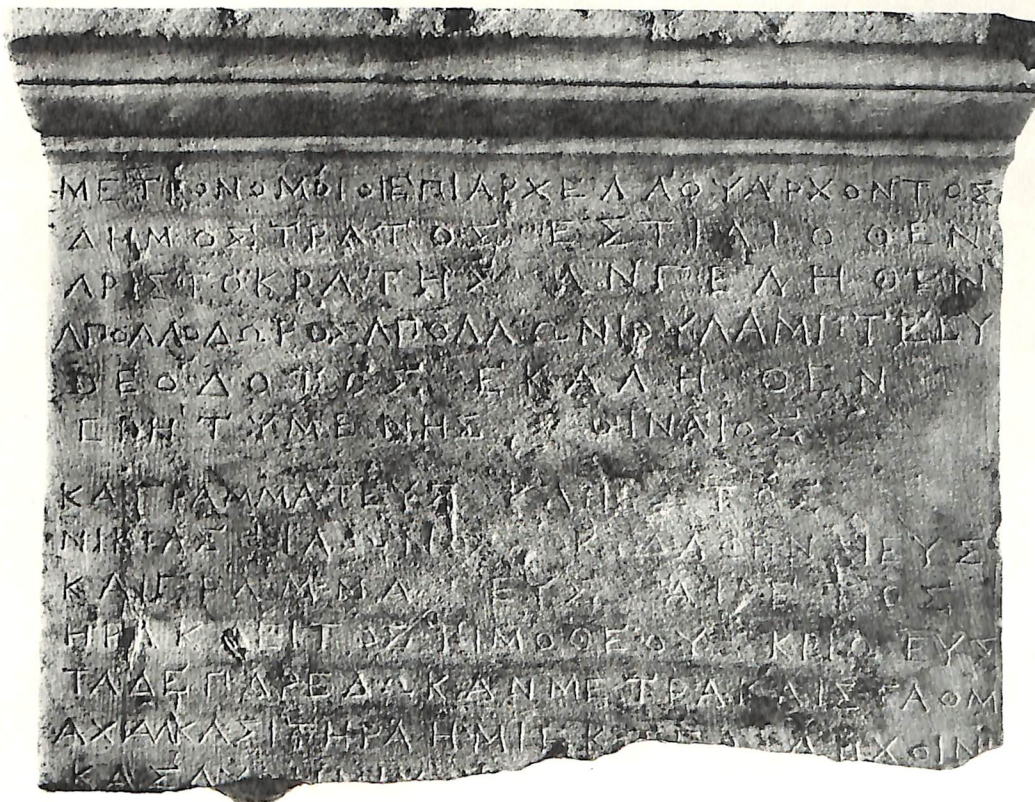 ΜΕΤΡΟΝΟΜΟΙΟΙΕΠΙΑΡΧΕΛΑΟΥΑΡΧΟΝΤΟΣ
ΔΗΜΟΣΤΡΑΤΟΣ ΕΣΤΙΑΙΟΘΕΝ
ΑΡΙΣΤΟΚΡΑΤΗΣ ΑΝΓΕΛΗΘΕΝ
ΑΠΟΛΛΟΔΩΡΟΣΑΠΟΛΛΩΝΙΟΥΛΑΜΠΤΕΕΥ
ΘΕΟΔΟΤΟΣ ΕΚΑΛΗΘΕΝ
ΕΠΗΤΥΜΕΝΗΣ ΟΙΝΑΙΟΣ
ΚΑΙΓΡΑΜΜΑΤΕΥΣ
ΝΙΚΙΑΣ ΚΥΔΑΘΗΝΑΙΕΥΣ
ΚΑΙΓΡΑΜΜΑΤΕΥΣ ΑΙΡΕΤΟΣ
ΗΡΑΚΛΕΙΤΟΣ ΤΙΜΟΘΕΟΥ ΚΡΙΩΕΥΣ
ΤΑΔΕΠΑΡΕΔΩΚΑΝΜΕΤΡΑΚΑΙΣΤΑΘΜ
ΣΙΤΗΡΑ